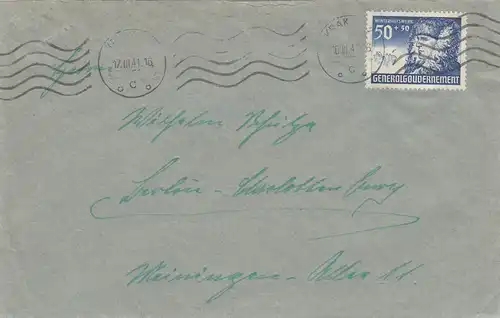 17.III.41.16
C
KRAK
C
WINTERHILFSWERK
50+50
GENERALGOUVERNEMENT
Wilhelm Schulze
Berlin-Charlottenburg
Meiningen-Allee 11